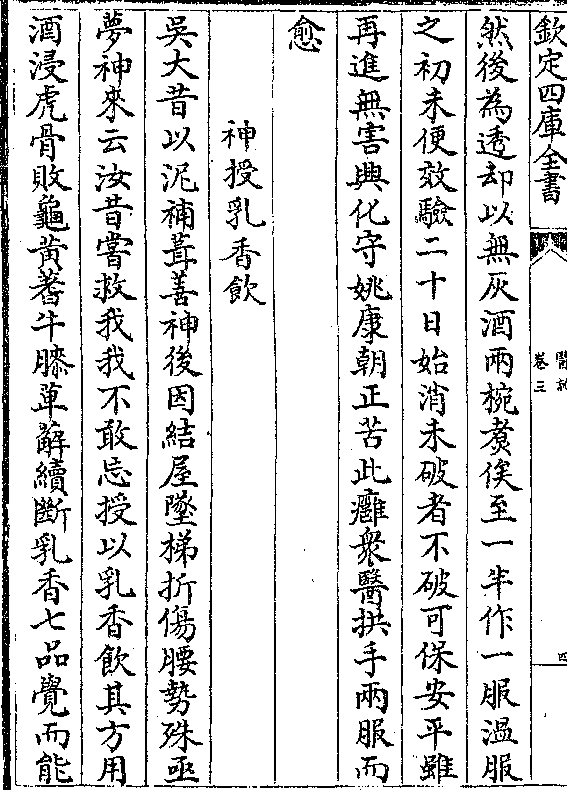 欽定四庫全書
醫說
卷三
四
然後為透却以無灰酒兩椀煑俟至一半作一服溫服
之初未便效驗二十日始消未破者不破可保安平雖
再進無害興化守姚康朝正苦此癰衆醫拱手兩服而
愈
神授乳香飲
吳大昔以泥補葺善神後因結屋墜梯折傷腰勢殊亟
夢神來云汝昔嘗救我我不敢忘授以乳香飲其方用
酒浸虎骨敗龜黃蓍牛膝萆薢續斷乳香七品覺而能